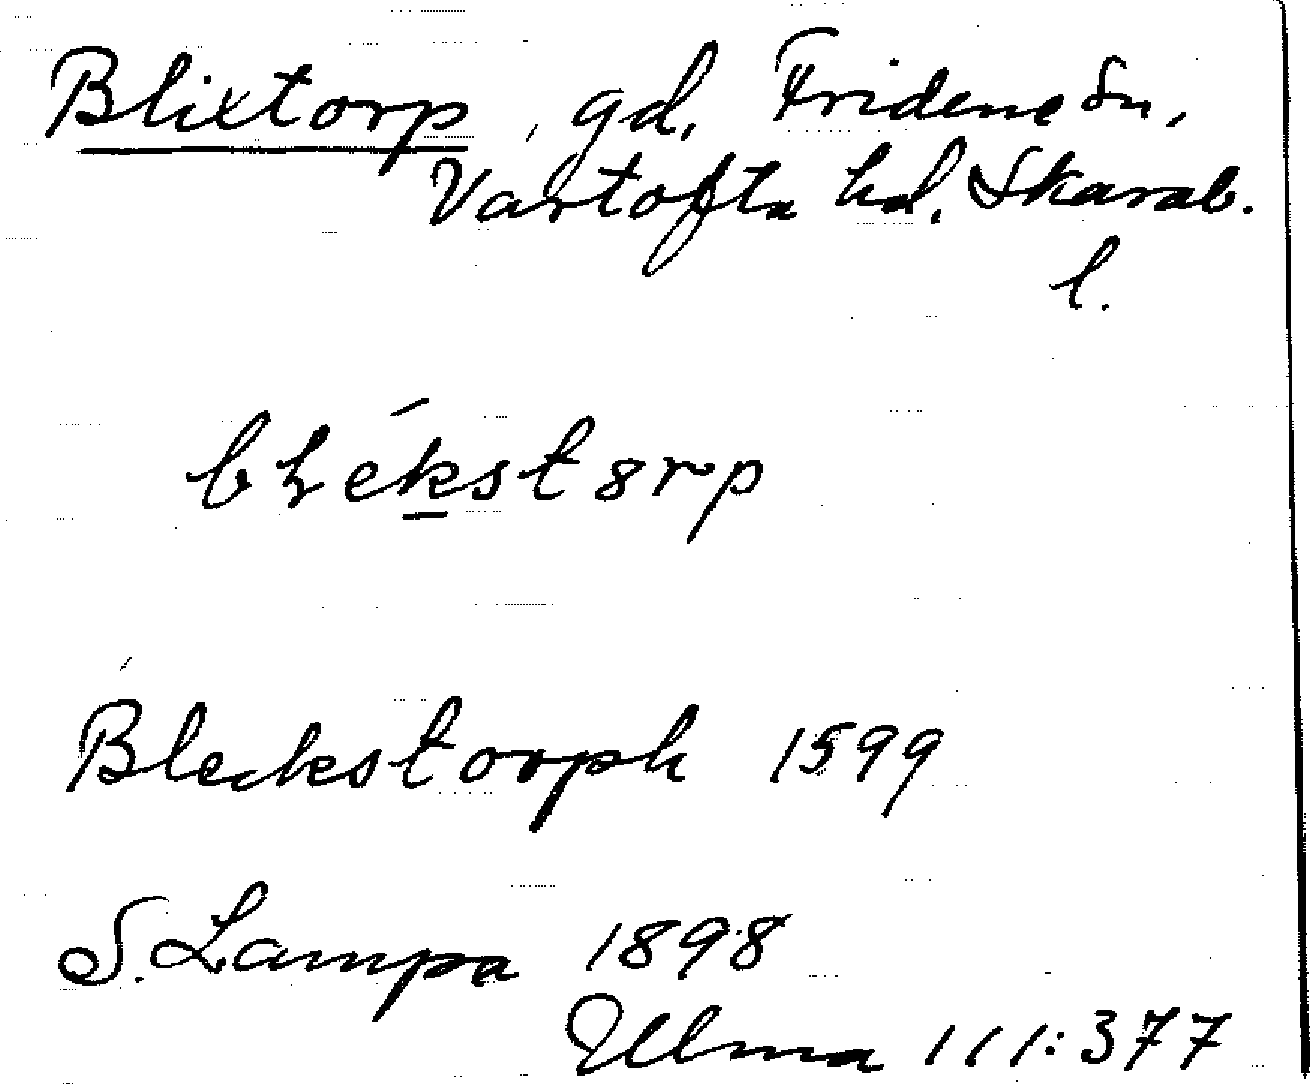 Blixtorp, gd, Fridene sn,
Vartofta hd. Skarab.
l.
blékstorp
Bleckstorph 1599
S. Lampa 1898
Ulma 111:377